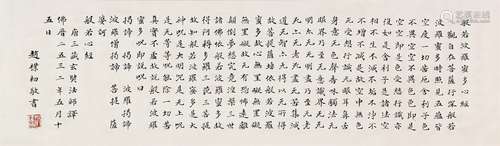 般若波羅蜜多心經
觀自在菩薩行深般若
波羅蜜多時照見五蘊皆
空度一切苦厄舍利子色
不異空空不異色色即是
空空即是色受想行識亦
復如是舍利子是諸法空
相不生不滅不垢不淨不
增不減是故空中无色无
受想行識无眼耳鼻舌
身意无色聲香味觸法
无眼界乃至无意識界
无无明亦无无明盡乃
至无老死亦无老死盡
无苦集滅
道无智亦无得以无所得
故菩提薩埵依般若波羅
蜜多故心无罣礙
无罣礙故无有恐怖遠離
顛倒夢想究竟涅槃三世
諸佛依般若波羅蜜多故
得阿耨多羅三藐三菩提
故知般若波羅蜜多是大
神咒是大明咒是无上咒
是无等等咒能除一切苦
真實不虛故說般若波羅
蜜多咒即說咒曰
揭諦揭諦 波羅揭諦
波羅僧揭諦 菩提薩
婆訶
般若心經
唐三藏玄奘法師譯
佛曆二五三二年五月十
五日
趙樸初敬書